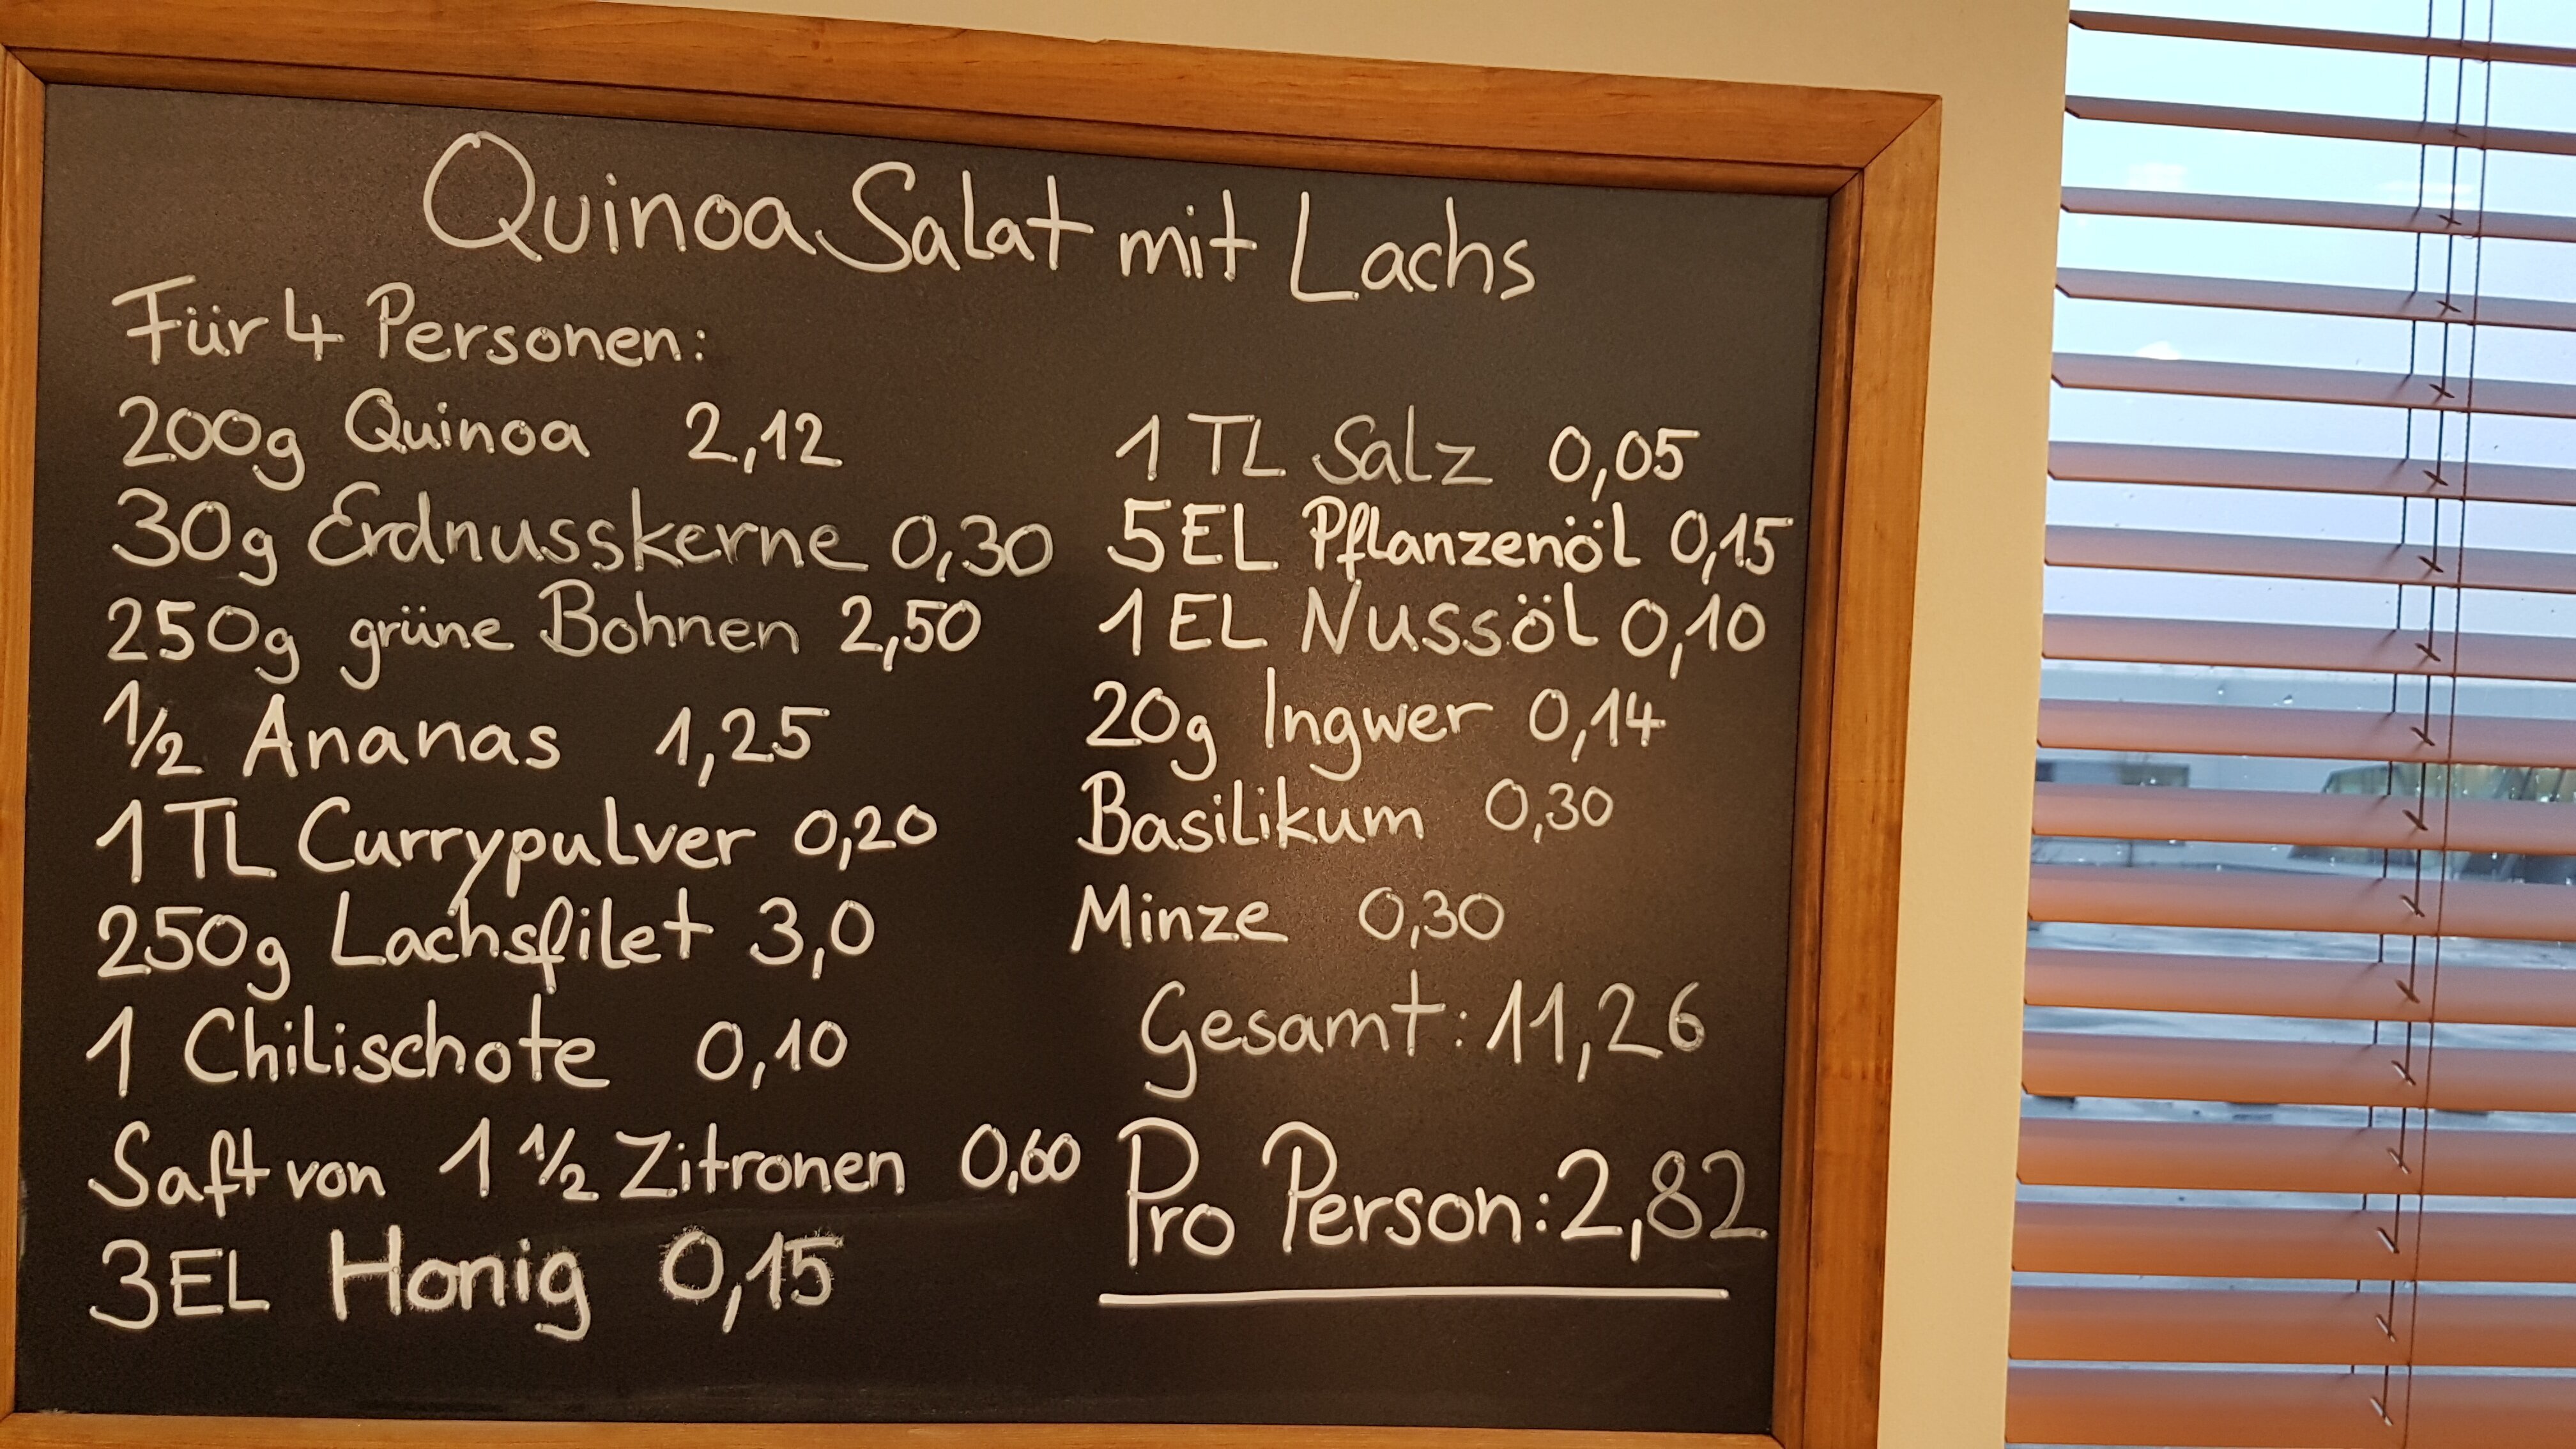 Quinoa Salat mit Lachs
Für 4 Personen:
200g Quinoa 2,12
30g Erdnusskerne 0,30
250g grüne Bohnen 2,50
1/2 Ananas 1,25
1 TL Currypulver 0,20
250g Lachsfilet 3,0
1 Chilischote 0,10
Saft von 1 1/2 Zitronen 0,60
3EL Honig 0,15
1 TL Salz 0,05
5EL Pflanzenöl 0,15
1 EL Nussöl 0,10
20g Ingwer 0,14
Basilikum 0,30
Minze 0,30
Gesamt: 11,26
Pro Person: 2,82